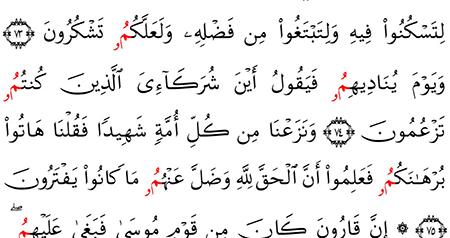 لِتَسْكُنُوا۟ فِيهِ وَلِتَبْتَغُوا۟ مِن فَضْلِهِۦ وَلَعَلَّكُمُۥ تَشْكُرُونَ ٧٣
وَيَوْمَ يُنَادِيهِمُۥ فَيَقُولُ أَيْنَ شُرَكَآءِىَ ٱلَّذِينَ كُنتُمُۥ
تَزْعُمُونَ ٧٤ وَنَزَعْنَا مِن كُلِّ أُمَّةٍ شَهِيدًا فَقُلْنَا هَاتُوا۟
بُرْهَٰنَكُمُۥ فَعَلِمُوٓا۟ أَنَّ ٱلْحَقَّ لِلَّهِ وَضَلَّ عَنْهُمُۥ مَا كَانُوا۟ يَفْتَرُونَ
٧٥ ۞ إِنَّ قَٰرُونَ كَانَ مِن قَوْمِ مُوسَىٰ فَبَغَىٰ عَلَيْهِمُۥ